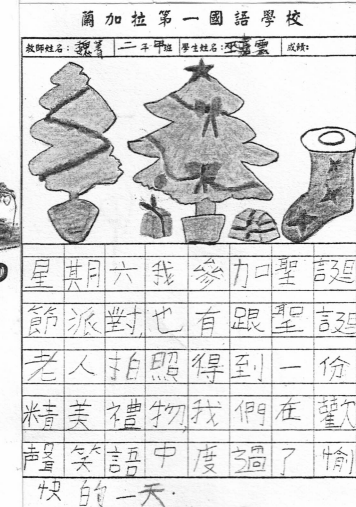 蘭加拉第一國語學校
教師姓名： 二年甲班 學生姓名：巫雲 成績：
星期六我參加聖誕
節派對,也有跟聖誕
老人拍照得到一份
精美禮物,我們在歡
聲笑語中度過了愉
快的一天.